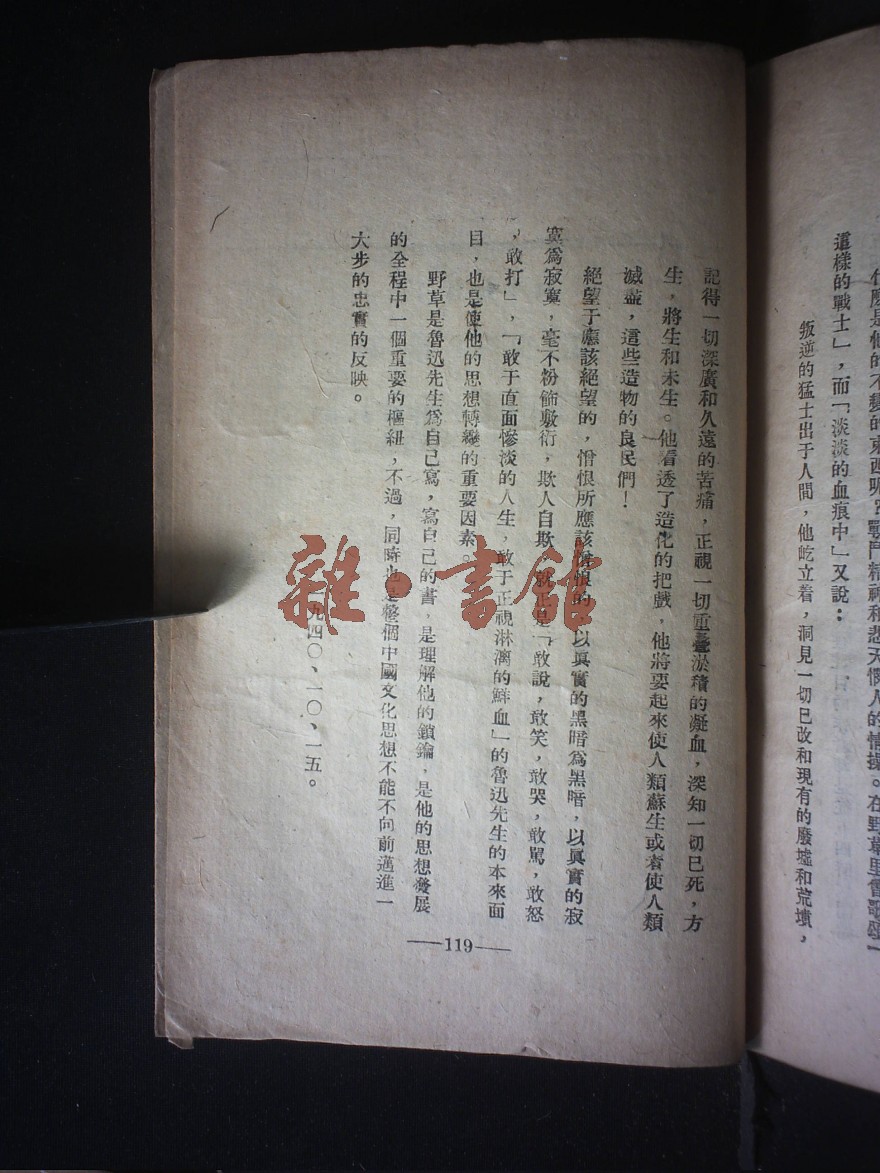 這樣的戰士」，而「淡淡的血痕中」又說：
叛逆的猛士出于人間，他屹立着，洞見一切已改和現有的廢墟和荒墳，
記得一切深廣和久遠的苦痛，正視一切重疊淤積的凝血，深知一切已死，方
生，將生和未生。他看透了造化的把戲，他將要起來使人類蘇生或者使人類
滅盡，這些造物的良民們！
絕望于應該絕望的，憎恨所應該憎恨的，以眞實的黑暗爲黑暗，以眞實的寂
寞爲寂寞，毫不粉飾敷衍，欺人自欺，就正是「敢說，敢笑，敢哭，敢駡，敢怒
，敢打」，「敢于直面慘淡的人生，敢于正視淋漓的鮮血」的魯迅先生的本來面
目，也是使他的思想轉變的重要因素。
野草是魯迅先生爲自己寫，寫自己的書，是理解他的鎖鑰，是他的思想發展
的全程中一個重要的樞紐，不過，同時也是整個中國文化思想不能不向前邁進一
大步的忠實的反映。
一九四〇、一〇、一五。
—119—
雜·書館